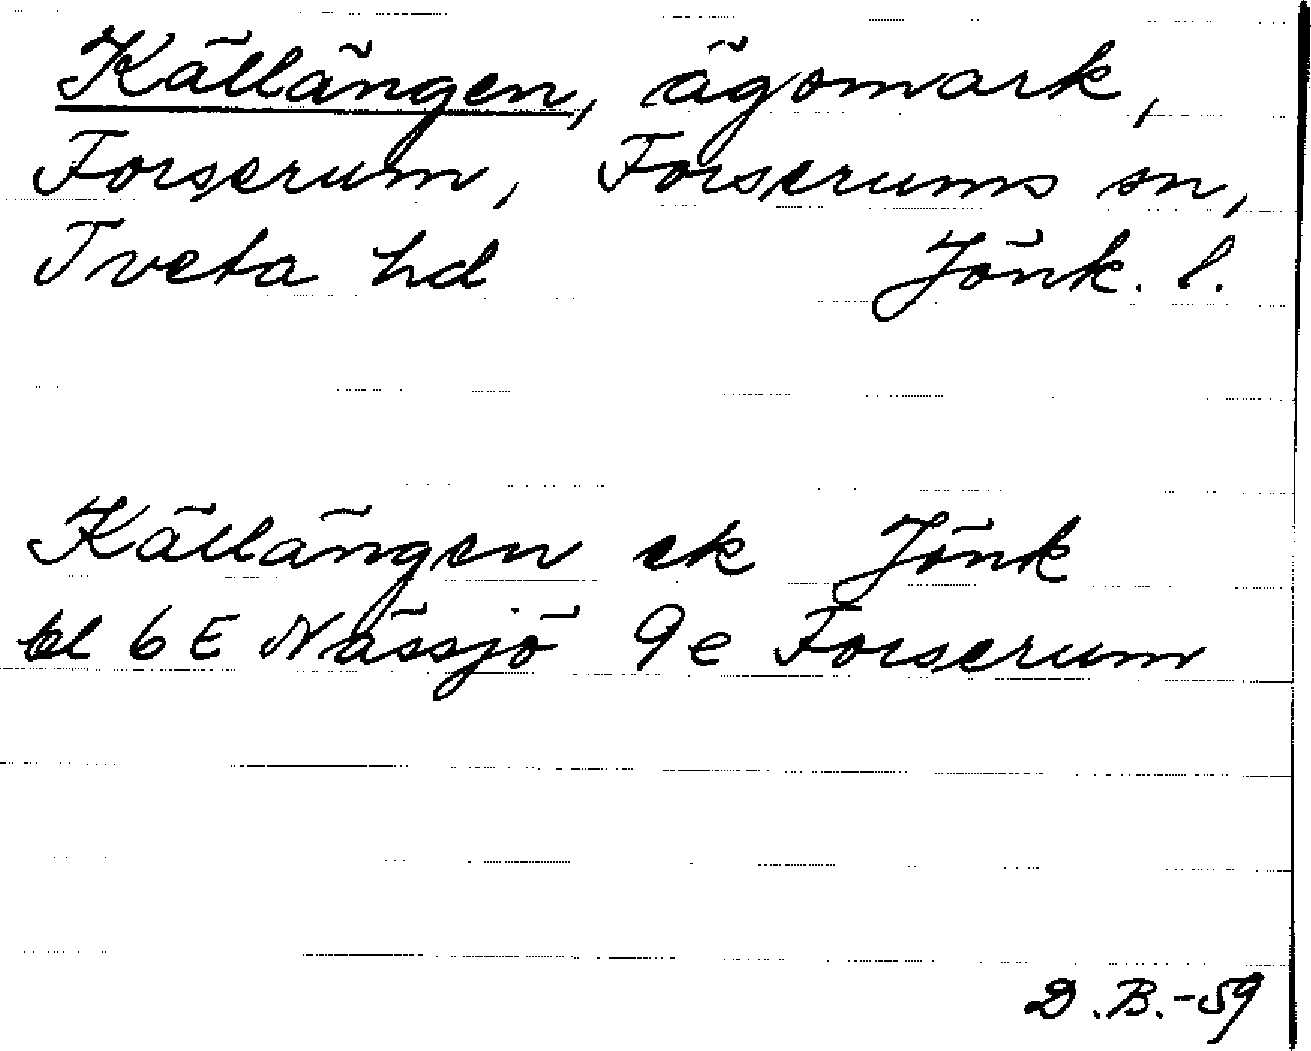 Källängen, ägomark,
Forserum, Forserums sn,
Tveta hd Jönk. l.
Källängen ek Jönk
bl 6 E Nässjö 9e Forserum
D.B.-59